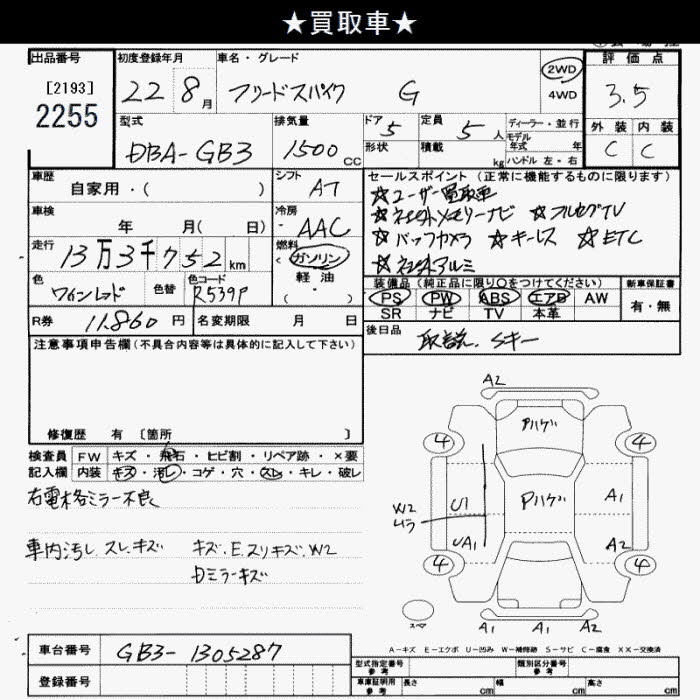 ★買取車★
出品番号 初度登録年月 車名・グレード 評価点
[2193] 22 8月 フリードスパイク G 2WD 3.5
2255 4WD
型式 排気量 ドア 定員 ディーラー・並行 外装 内装
DBA-GB3 1500cc 5 5人 モデル年式 年 C C
形状 積載 kg ハンドル 左・右
車歴 シフト セールスポイント (正常に機能するものに限ります)
自家用・( ) AT ☆ユーザー買取車
車検 冷房 ☆社外メモリーナビ ☆フルセグTV
年 月( 日) AAC ☆バックカメラ ☆キーレス ☆ETC
走行 燃料 ☆社外アルミ
13万3千752km ガソリン
軽・油
( )
色 色替 色コード 装備品 (純正品に限り○をつけてください) 新車保証書
ワインレッド R539P PS PW ABS エアB AW 有・無
SR ナビ TV 本革
R券 11,860円 名変期限 月 日 後日品 取説、Sキー
注意事項申告欄 (不具合内容等は具体的に記入して下さい)
修復歴 有 [箇所 ]
検査員 FW キズ・飛石・ヒビ割・リペア跡・×要
記入欄 内装 キズ・汚し・コゲ・穴・スレ・キレ・破レ
右電格ミラー不良
車内汚し、スレ、キズ キズ、E、スリキズ、W2
ミラーキズ
A2
Pハゲ
4 4
W2 U1 Pハゲ A1
ムラ
UA1 A2
4 4
スペア A1 A1 A2
A-キズ E-エクボ U-凹み W-補修跡 S-サビ C-腐食 XX-交換済
車台番号 GB3-1305287
型式指定番号 参考 類別区分番号 参考
登録番号
車庫証明用 参考 長さ cm 幅 cm 高さ cm